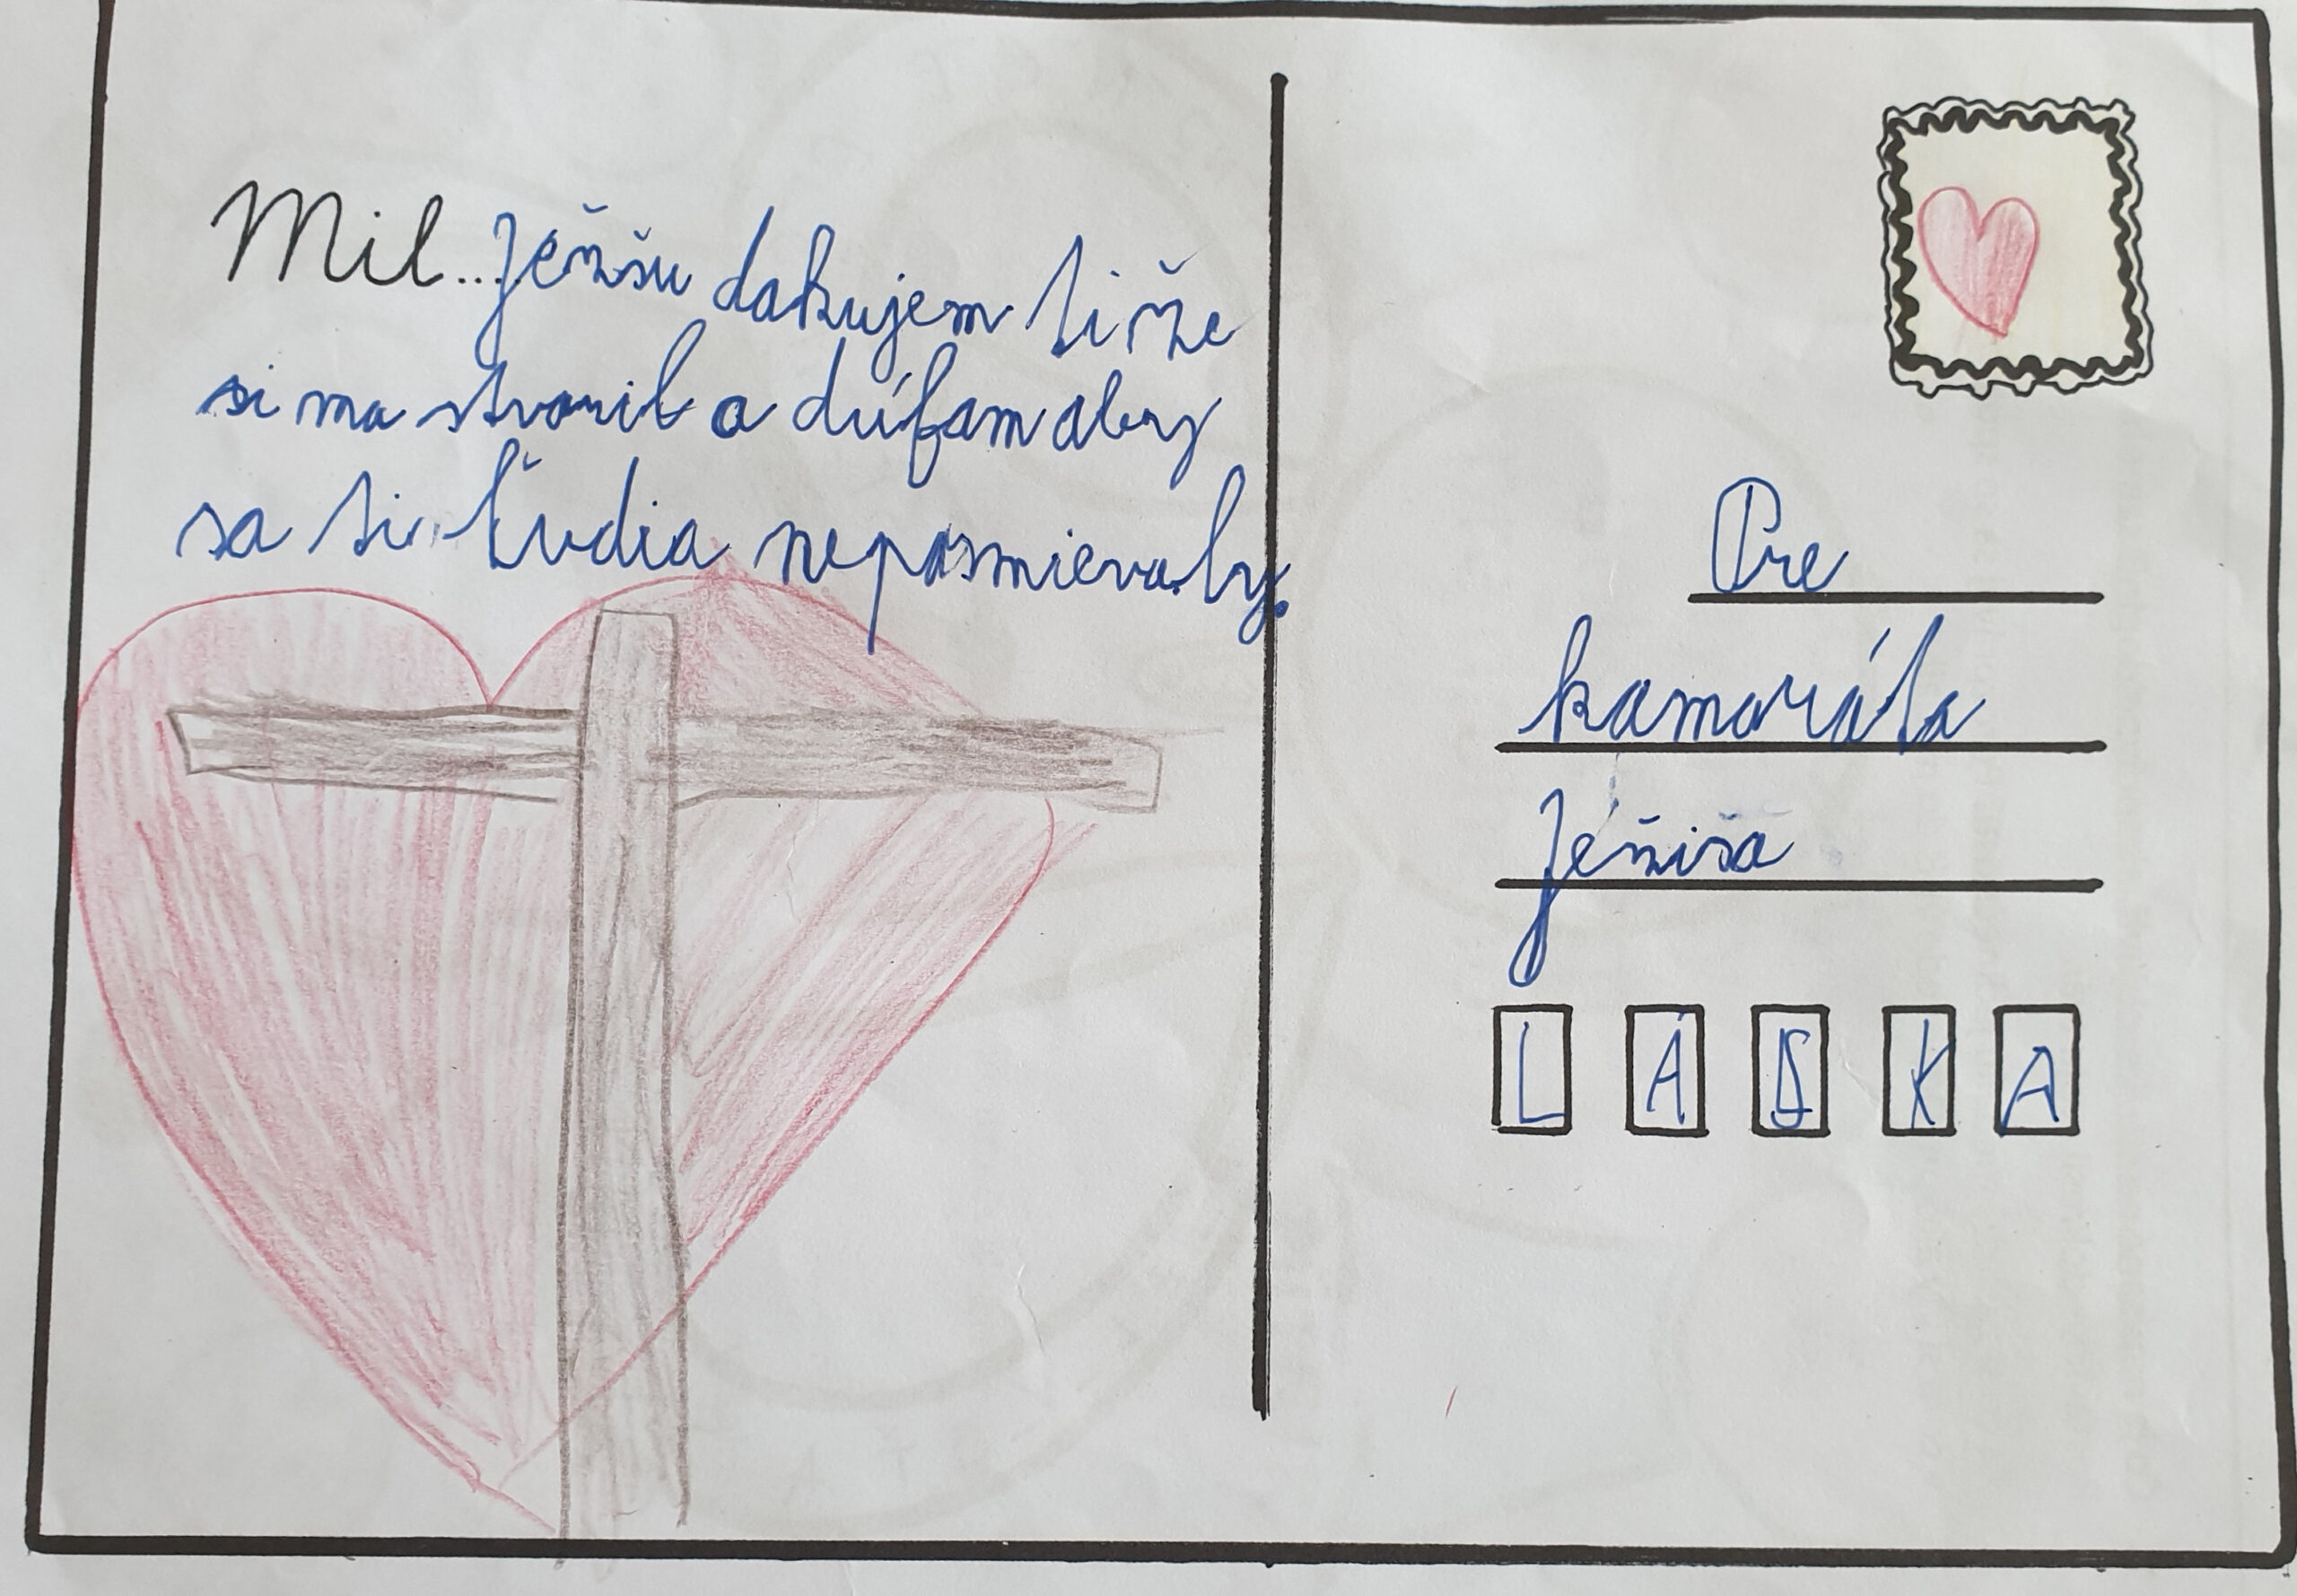 Mil... Ježišu dakujem ti že
si ma stvoril a dúfam aby
sa ti ľudia neposmievaly.
Pre
kamaráta
Ježiša
L Á S K A